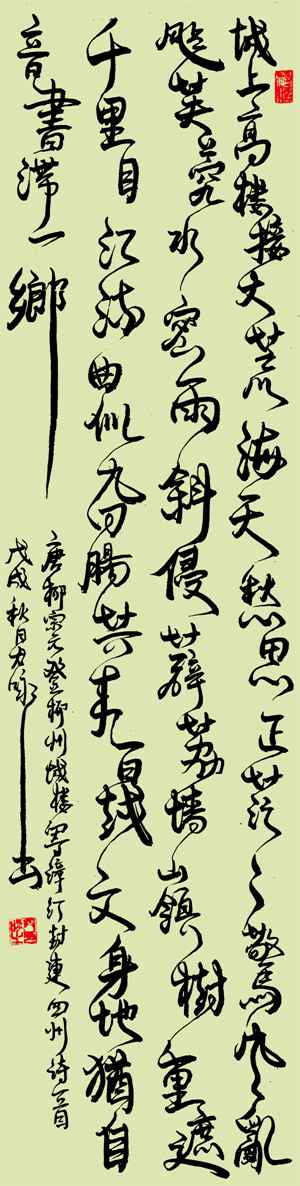 城上高樓接大荒海天愁思正茫々驚風亂
颭芙蓉水密雨斜侵薜荔墙嶺樹重遮
千里目江流曲似九回腸共来百越文身地猶自
音書滯一鄉
唐柳宗元登柳州城樓寄漳汀封連四州詩一首
戊戌秋日 书